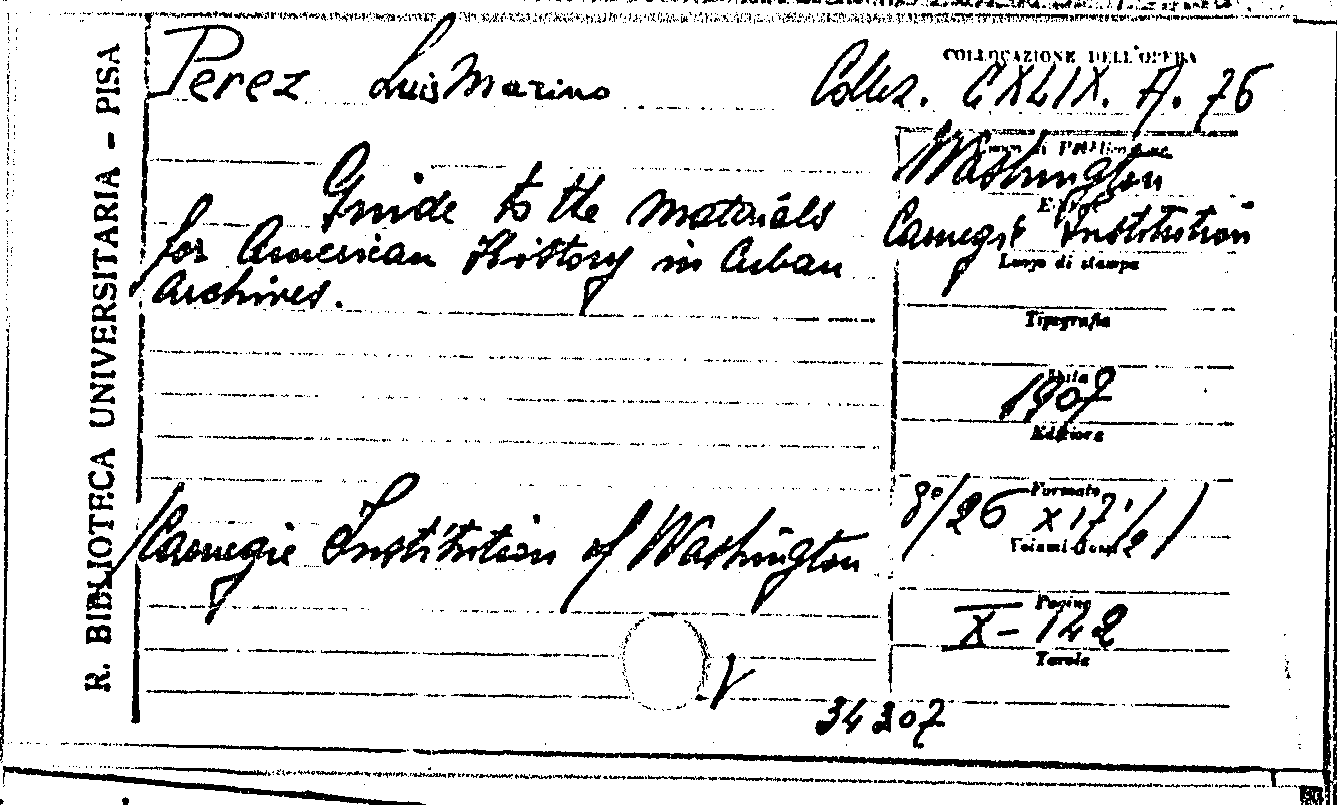 R. BIBLIOTECA UNIVERSITARIA - PISA
Perez Luis Marino
COLLOCAZIONE DELL'OPERA
Colloz. CXLIX. A. 76
Guide to the Materials
for American History in Cuban
Archives.
Washington
Carnegie Institution
Luogo di stampa
Tipografia
Data
1907
Editore
Formato
8°/26 x 17 1/2)
(Carnegie Institution of Washington
Pagine
X-142
Tavole
V
34207